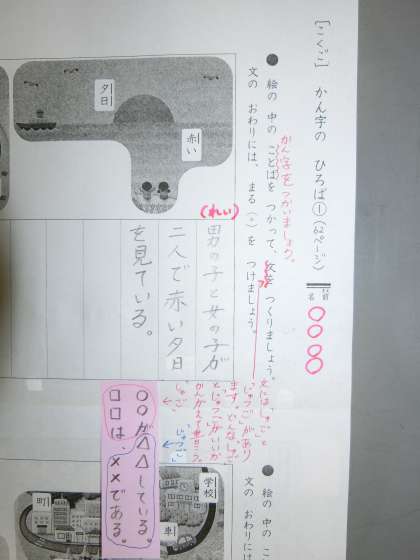 [こくご] かん字の ひろば① (62ページ)
名前
○○○○
● 絵の 中の ことばを つかって、文を つくりましょう。
かん字をつかいましょう。
文の おわりには、まる(。)を つけましょう。
夕日
赤い
(れい)
男の子と女の子が
二人で赤い夕日
を見ている。
文には「しゅご」と
「じゅつご」があり
ます。どんな「しゅご」
と「じゅつご」がいいか
かんがえて書こう。
しゅご
じゅつご
○○が△△している。
□□は、××である。
● 絵の 中の こ
文の おわりに
学校
町
車